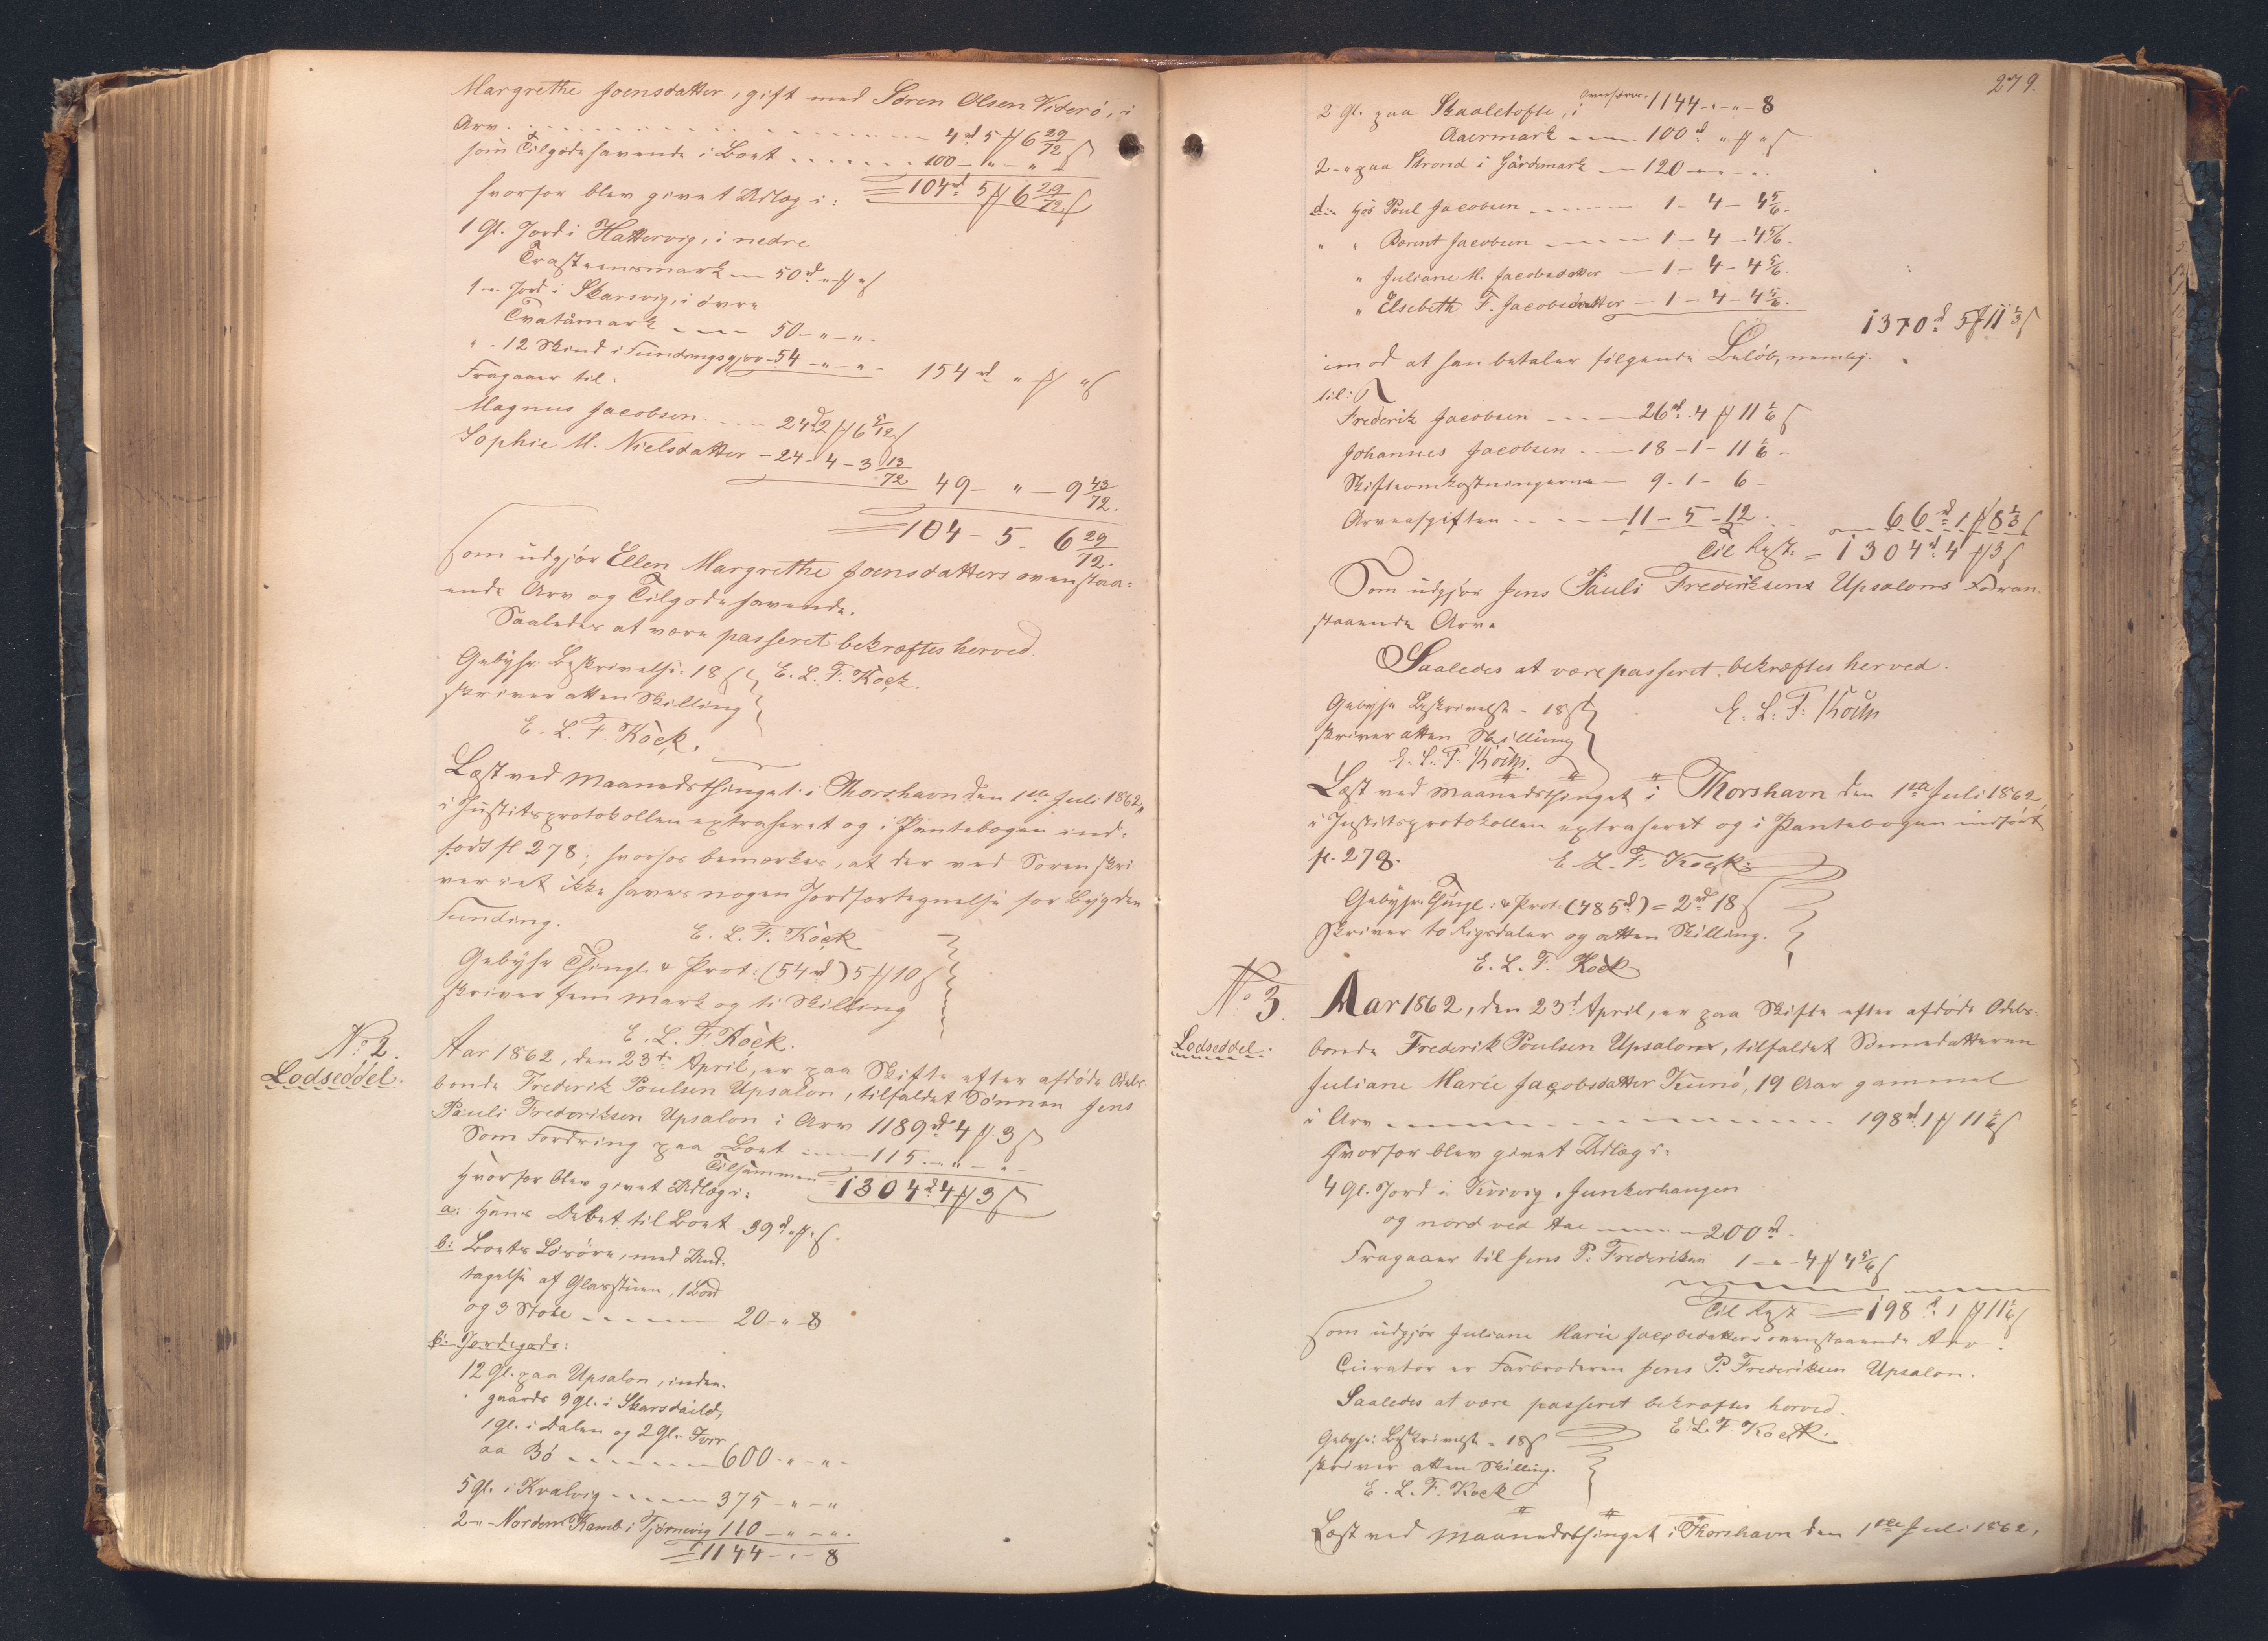 Margrethe Joensdatter, gift med Sören Olsen Viderö, i
Arv . . . . . . . . . . 4rd 5 ℳ 6 29/72 ß
som Tilgodehavende i Boet . . . . . . 100 - " - "
hvorfor blev givet Udlæg i: = 104rd 5 ℳ 6 29/72 ß
1 Gl. Jord i Hattervig, i nedre
50rd " ℳ " ß
1 - " Jord i Skarsvig, i övre
Tvatåmark - - - 50 - " - " -
" - 12 Skind i Fundingsgjov - 54 - " - " - 154rd " ℳ " ß
Fragaaer til:
Magnus Jacobsen . . - - 24rd 2 ℳ 6 5/12 ß
Sophie M. Nielsdatter - 24 - 4 - 3 13/72
49 - " - 9 43/72.
= 104 - 5 - 6 29/72.
som udgjör Ellen Margrethe Joensdatters ovenstaa-
ende Arv og Tilgodehavende.
Saaledes at være passeret bekræftes herved
Gebyhr: Beskrivelse: 18 ß E. L. F. Kock.
skriver atten Skilling
E. L. F. Kock.
Læst ved Maanedsthinget i Thorshavn den 1ste Juli 1862,
i Justitsprotokollen extraheret og i Pantebogen ind-
fört fl 278; hvorhos bemærkes, at der ved Sorenskri
veriet ikke haves nogen Jordfortegnelse for Bygden
Funding.
E. L. F. Kock
Gebyhr Thingl. & Prot: (54rd) 5 ℳ 10 ß
skriver fem Mark og ti Skilling
E. L. F. Kock.
No 2.
Lodseddel.
Aar 1862, den 23de April, er paa Skifte efter afdöde Odels-
bonde Frederik Poulsen Upsalon, tilfaldet Sönnen Jens
Pauli Frederiksen Upsalon i Arv 1189rd 4 ℳ 3 ß
Som Fordring paa Boet - - - 115 - " - " -
Tilsammen = 1304rd 4 ℳ 3 ß
Hvorfor blev givet Udlæg i:
a: Hans Debet til Boet 39rd " ℳ " ß.
b: Boets Lösöre, med Und-
tagelse af Glasstuen, 1 Bord
og 3 Stole - - - - - 20 - " - 8
c: Jordegods:
12 Gl. paa Upsalon, inden-
gaards 9 Gl. i Skarsdaild,
1 Gl. i Dalen og 2 Gl. Ivir
aa Bö - - - - - 600 - " - " -
5 Gl. i Kvalvig - - - - 375 - " - "
2 - " - Norden Kamb i Tjörnevig 110 - " - " -
= 1144 - " - 8
279.
2 Gl. paa Skaaletofte, i 1144 - " - 8
Aaermark - - - 100rd " ℳ " ß
2 - " paa Strond i Gjärdemark - 120 - " - " -
d: Hos Poul Jacobsen - - - - 1 - 4 - 4 5/6 -
" " Berent Jacobsen - - - 1 - 4 - 4 5/6.
" Juliane M. Jacobsdatter - 1 - 4 - 4 5/6
" Elsebeth F. Jacobsdatter - 1 - 4 - 4 5/6.
1370rd 5 ℳ 11 1/3 ß
imod at han betaler fölgende Belöb, nemlig:
til:
Frederik Jacobsen - - - 26rd 4 ℳ 11 1/6 ß
Johannes Jacobsen - - 18 - 1 - 11 1/6 -
Skifteomkostningerne - 9 - 1 - 6 -
Arveafgiften - - - 11 - 5 - 12 . . . 66rd 1 ℳ 8 1/3 ß
Til Rest = 1304rd 4 ℳ 3 ß
Som udgjör Jens Pauli Frederiksens Upsalons Foran-
staaende Arv.
Saaledes at være passeret bekræftes herved.
Gebyhr Beskrivelse - 18 ß E. L. F. Kock
skriver atten Skilling
E. L. F. Kock.
Læst ved Maanedsthinget i Thorshavn den 1ste Juli 1862,
i Justitsprotokollen extraheret og i Pantebogen indfört
fl. 278.
E. L. F. Kock.
Gebyhr. Thingl: & Prot: (485rd) = 2rd 18 ß
Skriver to Rigsdaler og atten Skilling.
E. L. F. Kock
No 3.
Lodseddel.
Aar 1862, den 23d April, er paa Skifte efter afdöde Odels-
bonde Frederik Poulsen Upsalon, tilfaldet Sönnedatteren
Juliane Marie Jacobsdatter Kunö, 19 Aar gammel
i Arv - - - - - - - - 198rd 1 ℳ 11 1/6 ß
Hvorfor blev givet Udlæg i:
4 Gl. Jord i Kvivig, Junkerhaugen
og nord ved Aae - - - - 200rd -
Fragaaer til Jens P. Frederiksen 1 - " - 4 ℳ 4 5/6 ß
Til Rest = 198rd 1 ℳ 11 1/6 ß
som udgjör Juliane Marie Jacobsdatters ovenstaaende Arv.
Curator er Farbroderen Jens P. Frederiksen Upsalon.
Saaledes at være passeret bekræftes herved.
E. L. F. Kock.
Gebyhr: Beskrivelse - 18 ß
skriver atten Skilling.
E. L. F. Kock
Læst ved Maanedsthinget i Thorshavn den 1ste Juli 1862,